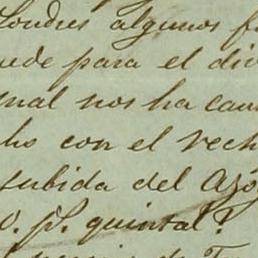 Londres algunos f
uede para el div
nal nos ha cau
ho con el rech
subida del Azó
0. pS. quintal?